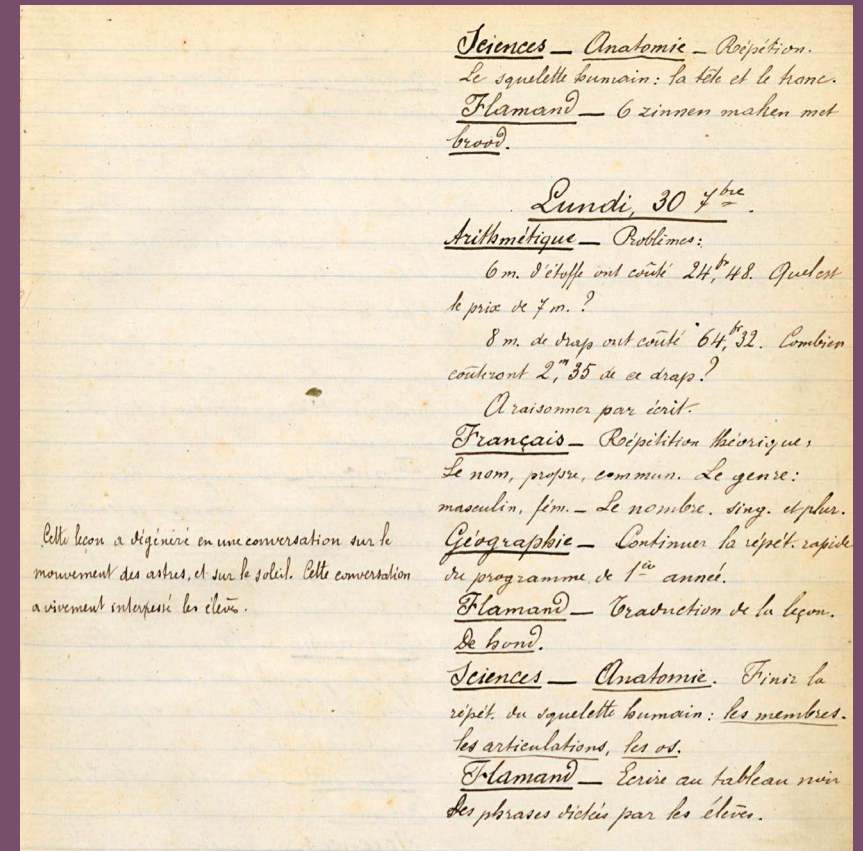 Sciences — Anatomie — Répétion.
Le squelette humain : la tête et le tronc.
Flamand — 6 zinnen maken met
brood.
Lundi, 30 7bre.
Arithmétique — Problèmes :
6 m. d'étoffe ont coûté 24,fr 48. Quel est
le prix de 7 m. ?
8 m. de drap ont coûté 64,fr 32. Combien
coûteront 2,m 35 de ce drap ?
A raisonner par écrit.
Français — Répétition théorique :
Le nom, propre, commun. Le genre :
masculin, fém. — Le nombre. sing. et plur.
Géographie — Continuer la répét. rapide
du programme de 1ère année.
Flamand — Traduction de la leçon.
De hond.
Sciences — Anatomie. Finir la
répét. du squelette humain : les membres.
les articulations, les os.
Flamand — Ecrire au tableau noir
des phrases dictées par les élèves.
Cette leçon a dégénéré en une conversation sur le
mouvement des astres, et sur le soleil. Cette conversation
a vivement les élèves.